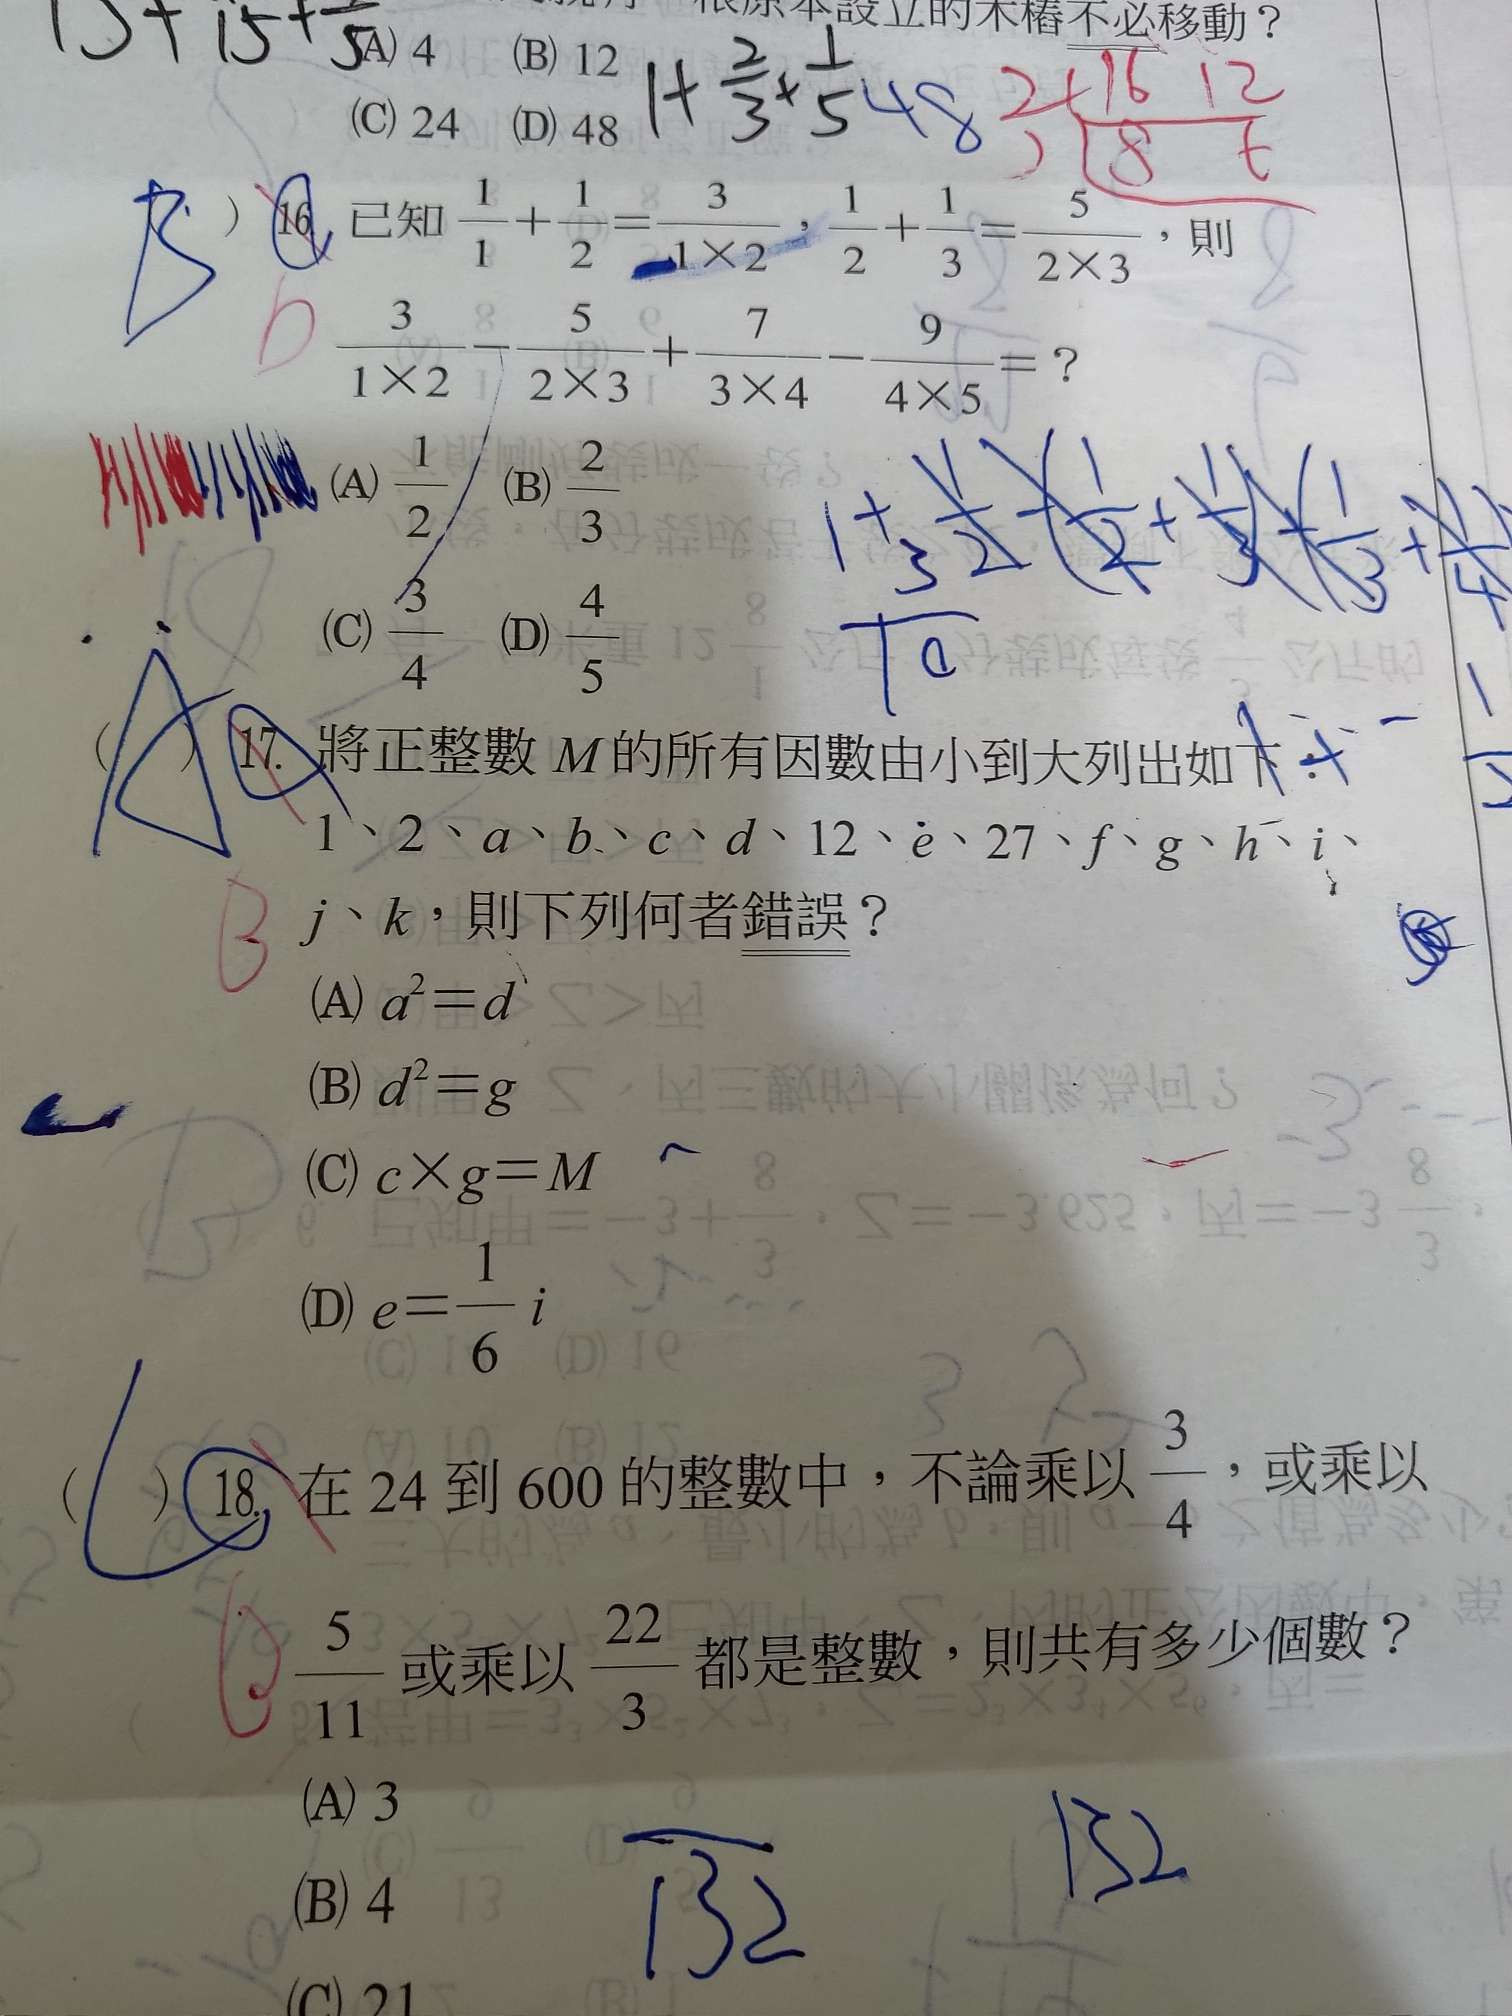 根原本設立的木樁不必移動?
(A) 4 (B) 12
(C) 24 (D) 48
1+2/3+1/5 48
16 12
8
B ) 16. 已知 1/1+1/2=3/(1×2),1/2+1/3=5/(2×3),則
D
3/(1×2)-5/(2×3)+7/(3×4)-9/(4×5)=?
(A) 1/2 (B) 2/3
(C) 3/4 (D) 4/5
1+1/2-(1/2+1/3)+(1/3+1/4)
( A ) 17. 將正整數 M 的所有因數由小到大列出如下:
1、2、a、b、c、d、12、e、27、f、g、h、i、
j、k,則下列何者錯誤?
B
(A) a²=d
(B) d²=g
(C) c×g=M
(D) e=1/6 i
( ) 18. 在 24 到 600 的整數中,不論乘以 3/4,或乘以
5/11 或乘以 22/3 都是整數,則共有多少個數?
(A) 3
(B) 4
(C) 21
132
132